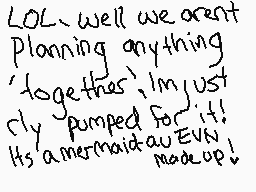 LOL. well we arent
planning anything
'together', Im just
rly pumped for it!
Its a mermaid au EVN
made up!